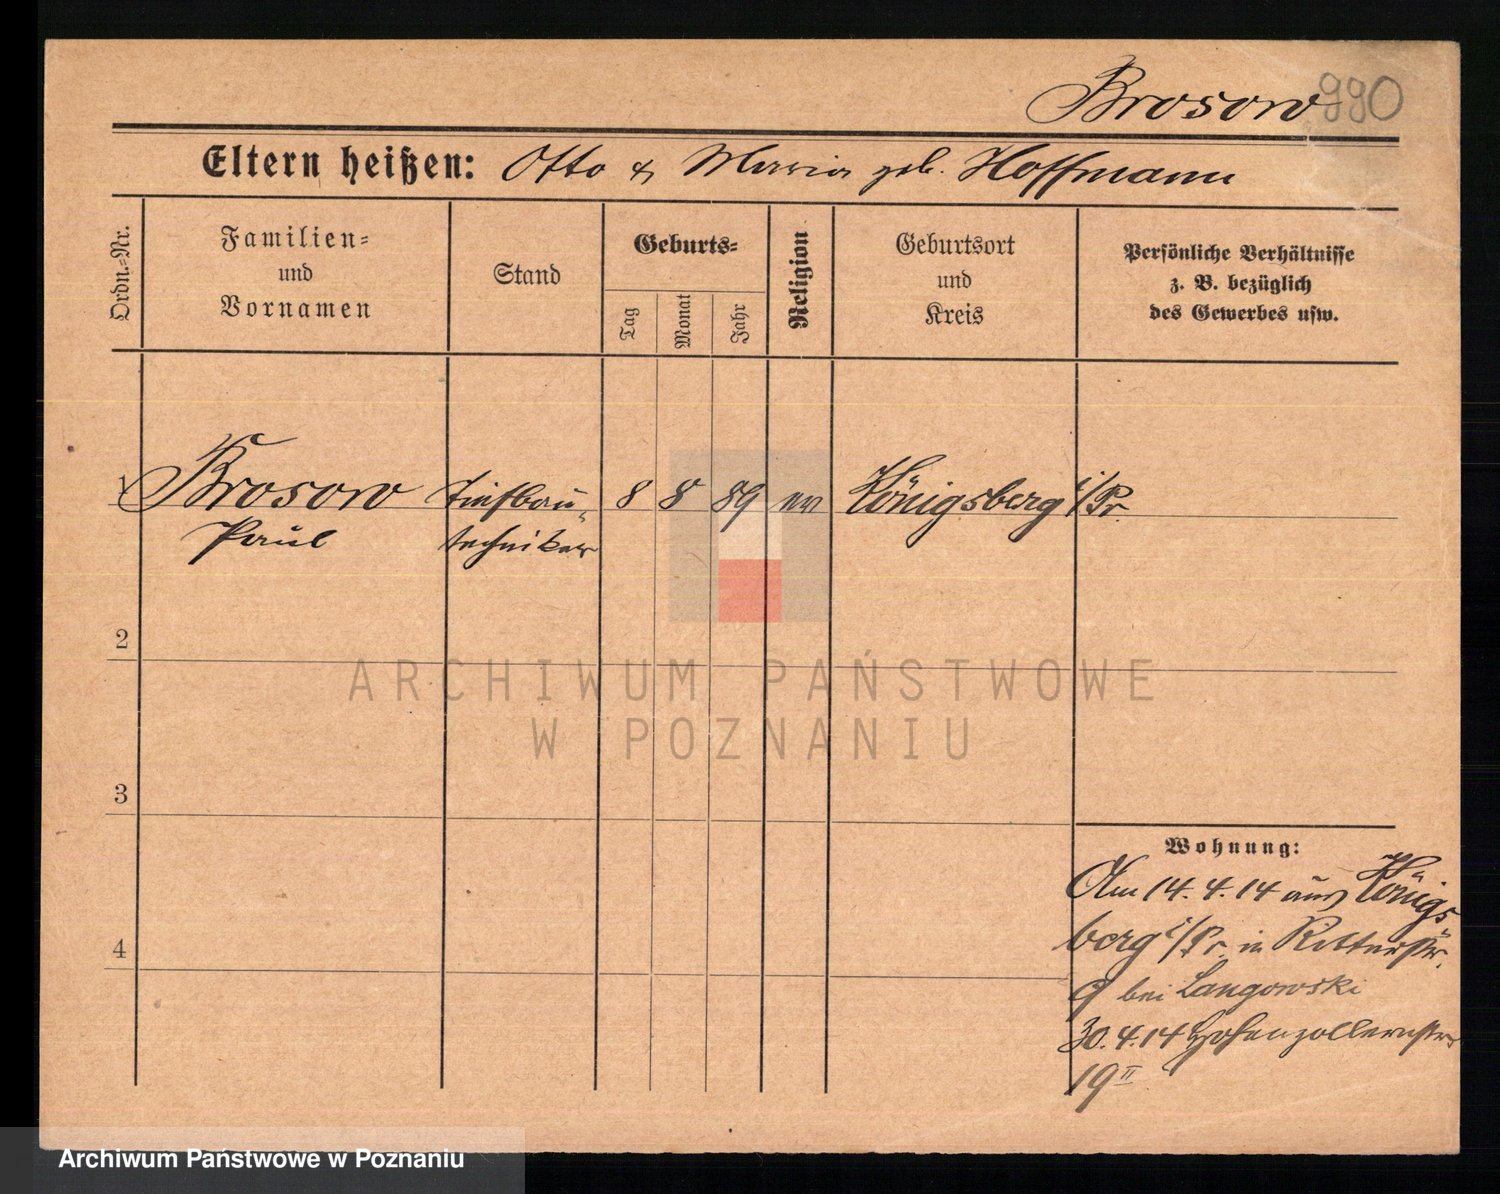 Brosow 990
Eltern heißen: Otto & Maria geb. Hoffmann
Ordn.-Nr.
Familien-
und
Vornamen
Stand
Geburts-
Tag
Monat
Jahr
Religion
Geburtsort
und
Kreis
Persönliche Verhältnisse
z. B. bezüglich
des Gewerbes usw.
1 Brosow Tiefbau- 8 8 89 ev Königsberg i/Pr.
Paul techniker
2
3
4
Wohnung:
Am 14.4.14 aus Königs
berg i/Pr. in Ritterstr.
9 bei Langowski
30.4.14 Hohenzollernstr.
19 II
ARCHIWUM PAŃSTWOWE
W POZNANIU
Archiwum Państwowe w Poznaniu